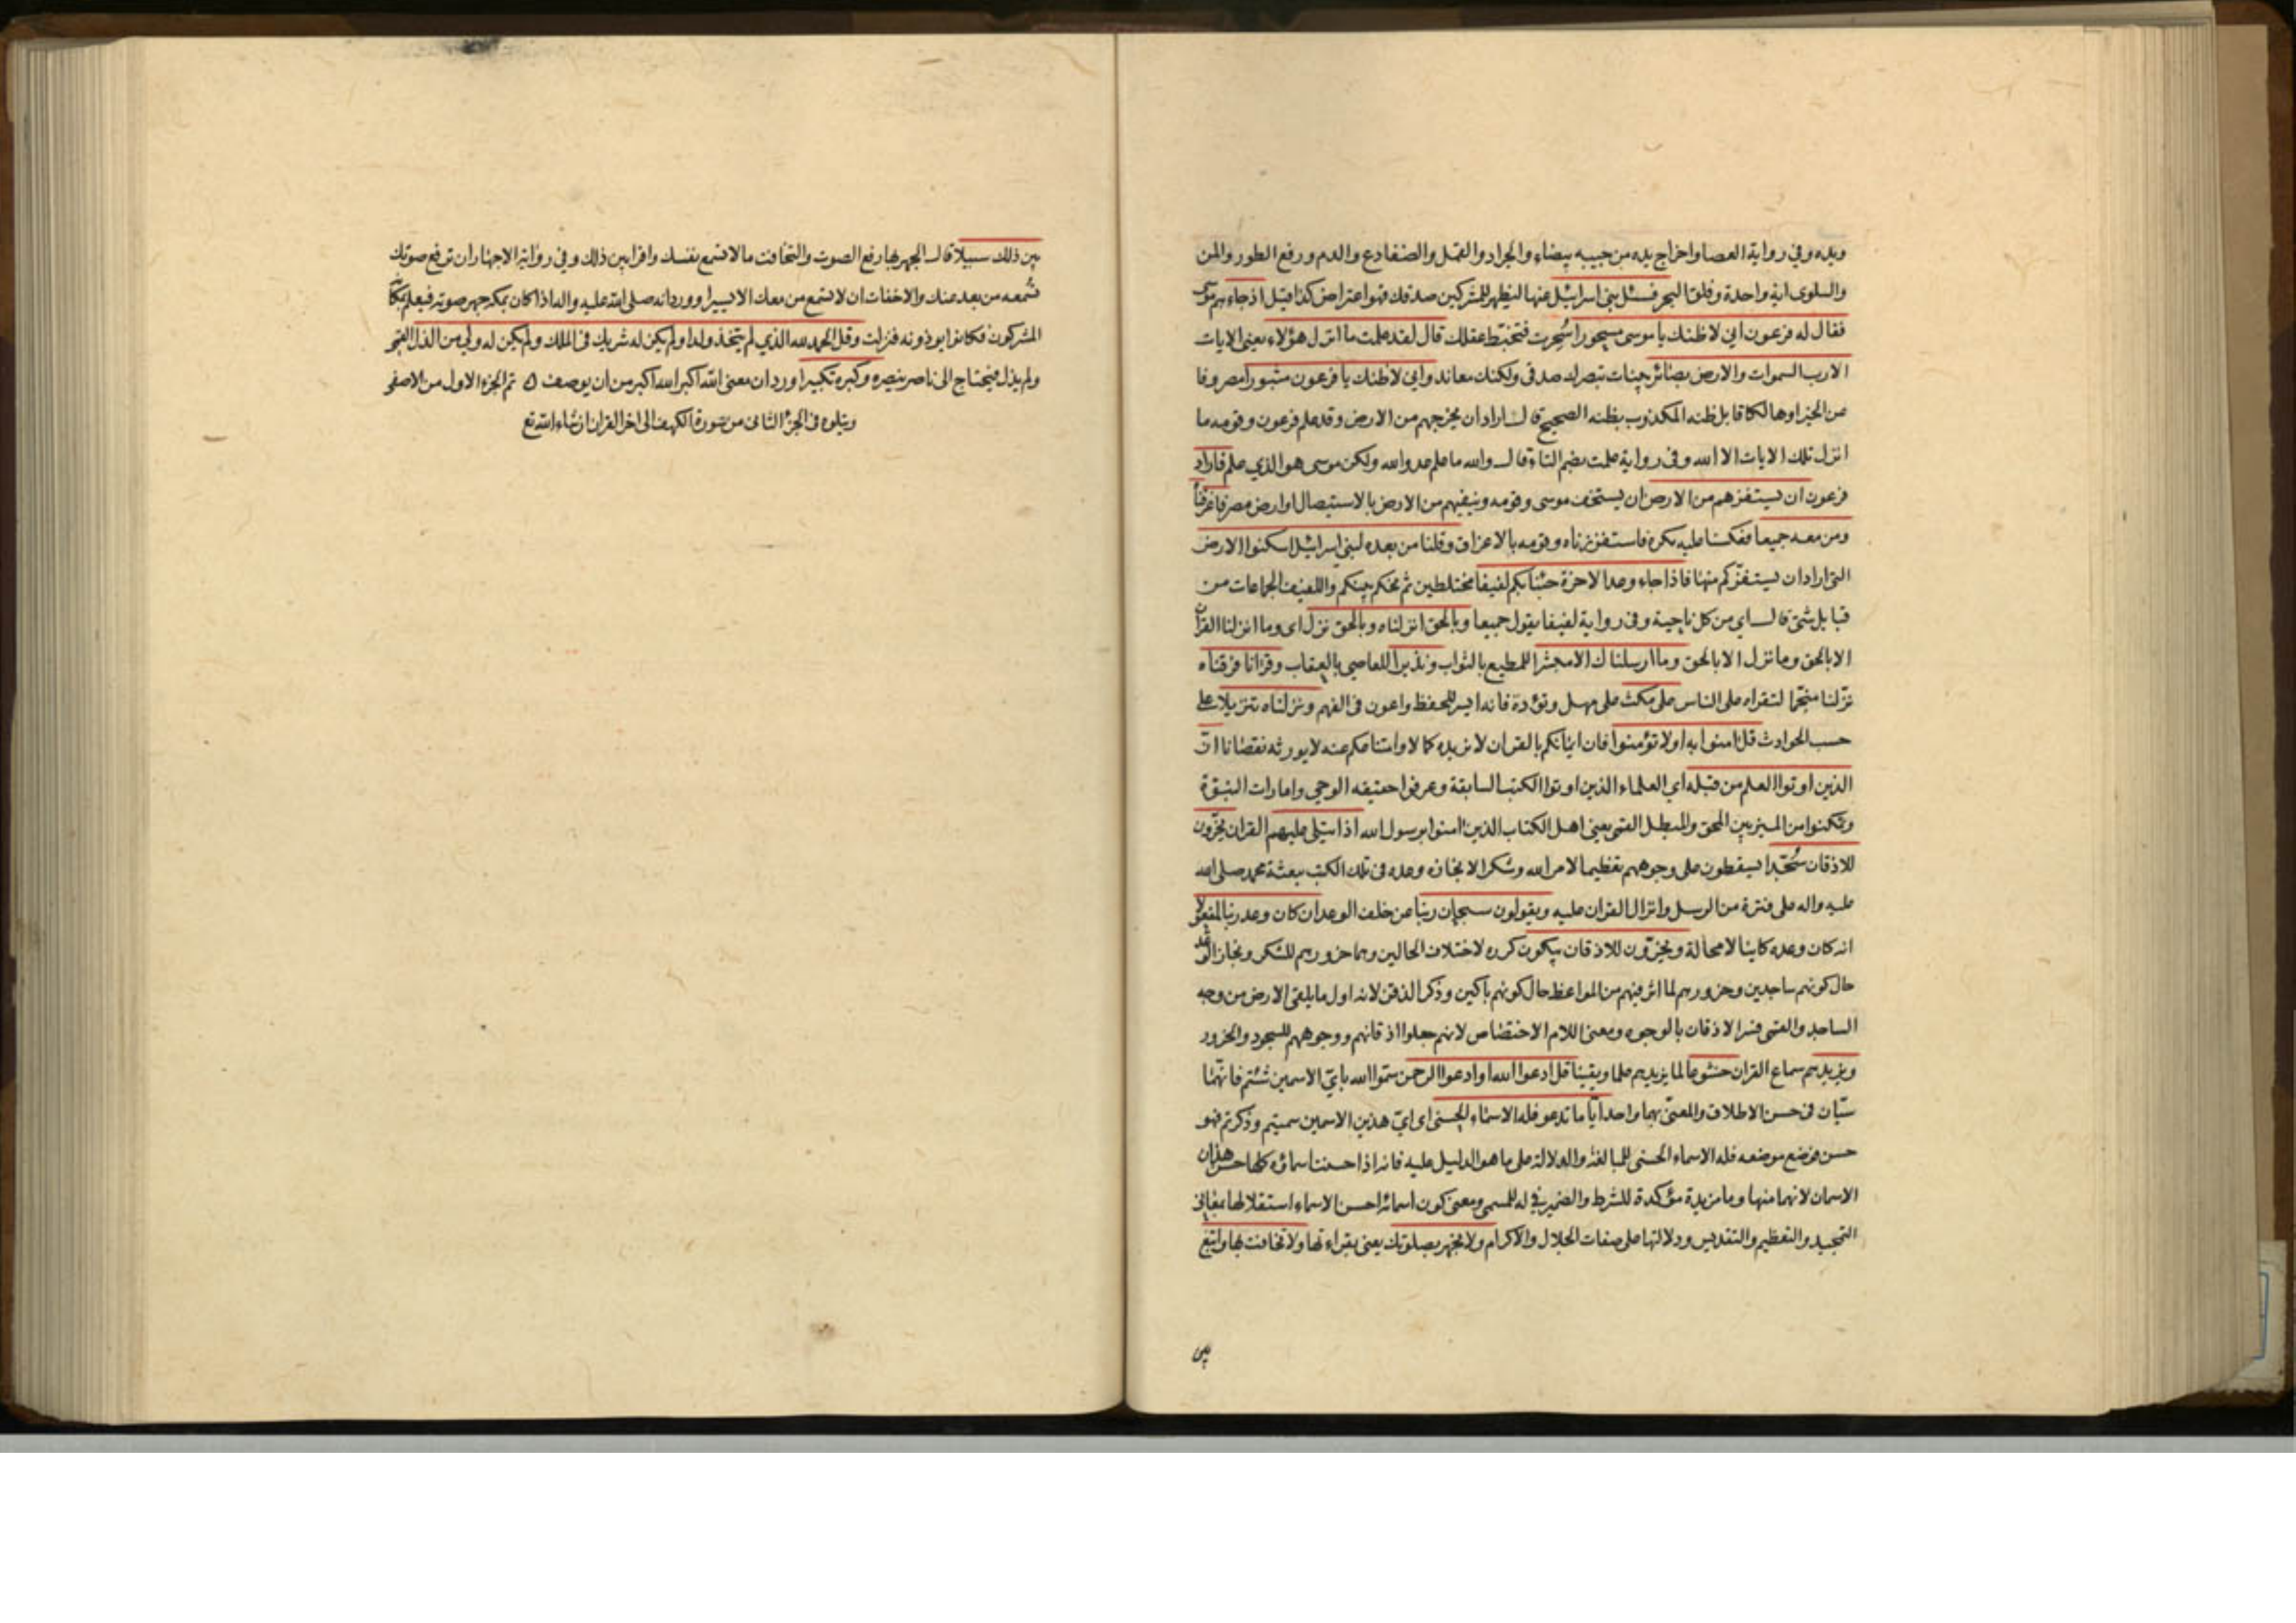 ويده وفي رواية العصا واخراج يده من جيبه بيضاء والجراد والقمل والضفادع والدم ورفع الطور والمن
والسلوى اية واحدة وفلق البحر فسئل بني اسرائيل عنها ليظهر للمشركين صدقك فهو اعتراض كذا قيل اذ جاءهم موسى
فقال له فرعون اني لاظنك يا موسى مسحورا سُحِرت فتخبّط عقلك قال لقد علمت ما انزل هؤلاء يعني الايات
الا رب السموات والارض بصائر بينات تبصرك صدقي ولكنك معاند واني لاظنك يا فرعون مثبورا مصروفا
عن الخير او هالكا قابل ظنه المكذوب بظنه الصحيح قال اراد ان يخرجهم من الارض وقد علم فرعون وقومه ما
انزل تلك الايات الا الله وفي رواية علمت بضم التاء قال والله ما علم عدو الله ولكن موسى هو الذي علم فاراد
فرعون ان يستفزهم من الارض ان يستخف موسى وقومه وينفيهم من الارض بالاستيصال او ارض مصر فاغرقناه
ومن معه جميعا فعكسنا عليه مكره فاستفززناه وقومه بالاغراق وقلنا من بعده لبني اسرائيل اسكنوا الارض
التي اراد ان يستفزّكم منها فاذا جاء وعد الاخرة جئنا بكم لفيفا مختلطين ثم نحكم بينكم واللفيف الجماعات من
قبايل شتى قال اي من كل ناحية وفي رواية لفيفا يقول جميعا وبالحق انزلناه وبالحق نزل اى وما انزلنا القران
الا بالحق وما نزل الا بالحق وما ارسلناك الا مبشرا للمطيع بالثواب ونذيرا للعاصي بالعقاب وقرانا فرقناه
نزّلنا منجّما لتقراه على الناس على مكث على مهل وتؤدة فانه ايسر للحفظ واعون في الفهم ونزلناه تنزيلا على
حسب الحوادث قل امنوا به اولا تؤمنوا فان ايمانكم بالقران لا يزيده كمالا وامتناعكم عنه لا يورثه نقصانا انّ
الذين اوتوا العلم من قبله اي العلماء الذين اوتوا الكتب السابقة وعرفوا حقيقة الوحي وامارات النبوّة
وتمكنوا من الميز بين المحق والمبطل القمى يعني اهل الكتاب الذين امنوا برسول الله اذا يتلى عليهم القران يخرّون
للاذقان سُجّدا يسقطون على وجوههم تعظيما لامر الله وشكرا لانجازه وعده في تلك الكتب ببعثة محمد صلى الله
عليه واله على فترة من الرسل وانزال القران عليه ويقولون سبحان ربنا عن خلف الوعد ان كان وعد ربنا لمفعولا
انه كان وعده كاينا لا محالة ويخرّون للاذقان يبكون كرره لاختلاف الحالين وهما خرورهم للشكر وانجاز الوعد
حال كونهم ساجدين وخرورهم لما اثر فيهم من المواعظ حال كونهم باكين وذكر الذقن لانه اول ما يلقى الارض من وجه
الساجد والقمى فسر الاذقان بالوجوه ومعنى اللام الاختصاص لانهم جعلوا اذقانهم ووجوههم للسجود والخرور
ويزيدهم سماع القران خشوعا لما يزيدهم علما ويقينا قل ادعوا الله او ادعوا الرحمن سمّوا الله بايّ الاسمين شئتم فانهما
سيّان في حسن الاطلاق والمعنى بهما واحد ايّا ما تدعو فله الاسماء الحسنى اى ايّ هذين الاسمين سميتم وذكرتم فهو
حسن فوضع موضعه فله الاسماء الحسنى للمبالغة والدلالة على ما هو الدليل عليه فانه اذا حسنت اسمائه كلها حسن هذان
الاسمان لانهما منها وما مزيدة مؤكدة للشرط والضمير في له للمسمى ومعنى كون اسمائه احسن الاسماء استقلالها بمعاني
التمجيد والتعظيم والتقديس ودلالتها على صفات الجلال والاكرام ولا تجهر بصلوتك يعني بقراءتها ولا تخافت بها وابتغ
بين
بين ذلك سبيلا قال الجهر بها رفع الصوت والتخافت ما لا تسمع نفسك واقرا بين ذلك وفي رواية الاجهار ان ترفع صوتك
تسمعه من بعد عنك والاخفات ان لا تسمع من معك الا يسيرا وورد انه صلى الله عليه واله اذا كان بمكة جهر صوته فيعلم بمكانه
المشركون فكانوا يوذونه فنزلت وقل الحمد لله الذي لم يتخذ ولدا ولم يكن له شريك في الملك ولم يكن له ولي من الذل القمى
ولم يذل فيحتاج الى ناصر ينصره وكبره تكبيرا ورد ان معنى الله اكبر الله اكبر من ان يوصف ٥ تم الجزء الاول من الاصفى
ويتلوه في الجزء الثاني من سورة الكهف الى اخر القران انشاء الله تع